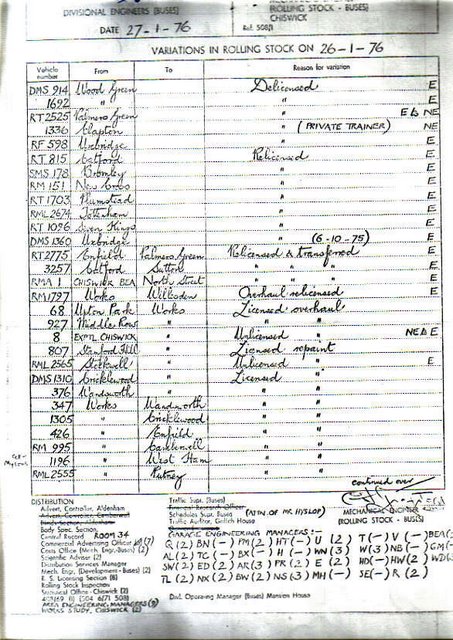 DIVISIONAL ENGINEERS (BUSES)
DATE 27-1-76
ROLLING STOCK - BUSES)
CHISWICK
Ref. 508/1
VARIATIONS IN ROLLING STOCK ON 26-1-76
Vehicle number From To Reason for variation
DMS 914 Wood Green Delicensed E
1692 " " NE
RT 2525 Palmers Green " E & NE
1336 Clapton " (PRIVATE TRAINER) NE
RF 598 Uxbridge " E
RT 815 Catford Relicensed E
SMS 178 Bromley " E
RM 151 New Cross " E
RT 1703 Plumstead " E
RML 2674 Tottenham " E
RT 1096 Seven Kings " E
DMS 1360 Uxbridge " (6-10-75) E
RT 2775 Enfield Palmers Green Relicensed & transferred E
3257 Catford Sutton " " " E
RMA 1 CHISWICK BEA North Street " " " E
RM 1797 Works Willesden Overhaul relicensed E
68 Upton Park Works Licensed overhaul
927 Middle Row " " "
8 EXPTL CHISWICK " Unlicensed " NE & E
807 Stamford Hill " Licensed repaint
RML 2565 Stockwell " Unlicensed " E
DMS 1310 Cricklewood " Licensed "
376 Wandsworth " " "
347 Works Wandsworth " "
1305 " Cricklewood " "
426 " Enfield " "
RM 995 " Camberwell " "
1196 " West Ham " "
RML 2555 " Putney " "
continued over
MECHANICAL ENGINEER
(ROLLING STOCK - BUSES)
DISTRIBUTION
Advert. Controller, Aldenham
Body Spec. Section
Central Record ROOM 34
Commercial Advertising Officer (7)
Costs Office (Mech. Engr.-Buses) (2)
Scientific Adviser (2)
Distribution Services Manager
Mech. Eng. (Development - Buses) (2)
R. S. Licensing Section (8)
Rolling Stock Inspection
Technical Office - Chiswick (2)
AREA ENGINEERING MANAGERS (3)
WORKS STUDY, CHISWICK (2)
Traffic Supt. (Buses)
Schedules Supt. (Buses) (ATTN. OF MR HYSLOP)
Traffic Auditor, Griffith House
GARAGE ENGINEERING MANAGERS:-
Divl. Operating Manager (Buses) Mansion House